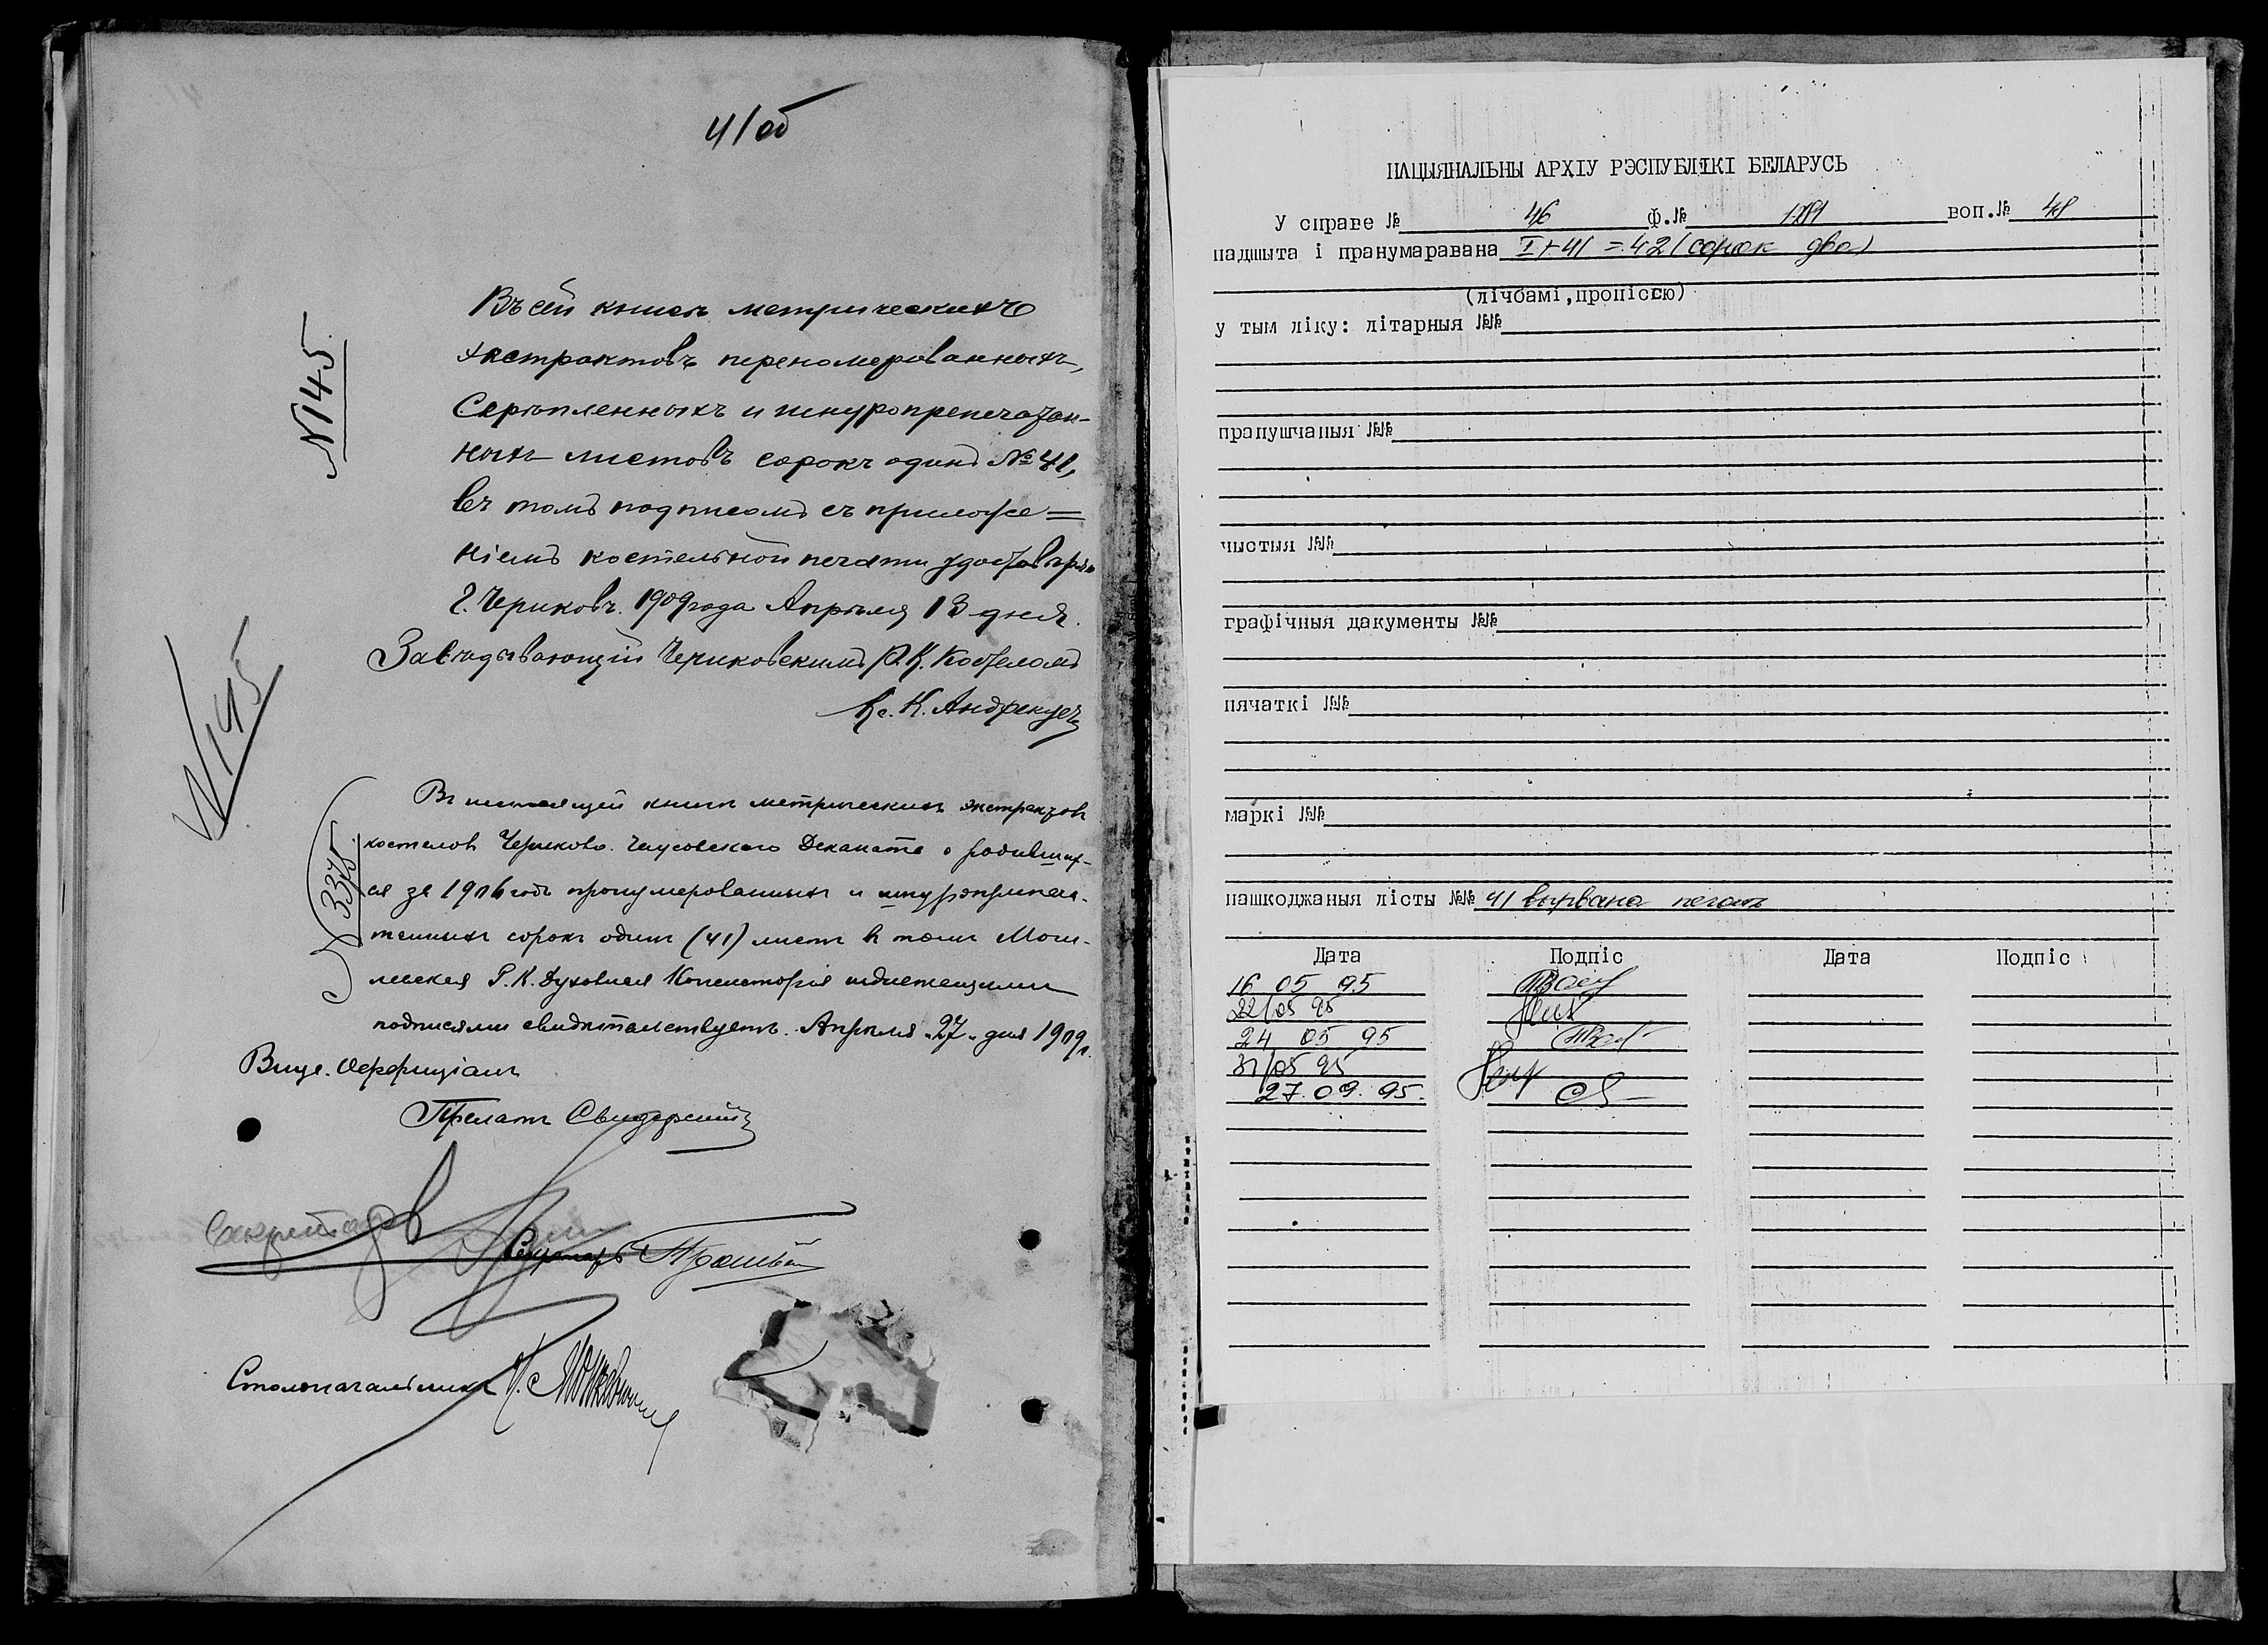 41об
№145
Въ сей книгѣ метрическихъ
экстрактовъ переномерованныхъ,
Скрѣпленныхъ и шнуропрепечатан-
ныхъ листовъ сорокъ одинъ №41,
въ томъ подписомъ съ приложе=
ніемъ костельной печати удостовѣряю
г. Чериковъ. 1909 года Апрѣля 13 дня.
Завѣдывающій Чериковскимъ Р.К. Костеломъ
Кс. К. Андрекусъ
№145
3375
Въ настоящей книгѣ метрическихъ экстрактовъ
костеловъ Чериково-Чаусовскаго Деканата о родивших-
ся за 1906 годъ пронумерованныхъ и шнуроприпеча-
танныхъ сорокъ одинъ (41) листъ въ томъ Моги-
левская Р.К. Духовная Консисторія надлежащими
подписями свидѣтельствуетъ. Апрѣля „27„ дня 1909 г.
Вице-Оффиціалъ
Прелатъ Свидерскій
Секретарь
Секретарь
Столоначальникъ
НАЦЫЯНАЛЬНЫ АРХІУ РЭСПУБЛІКІ БЕЛАРУСЬ
У справе № 46 ф.№ 1781 воп.№ 48
падшыта і пранумаравана I+41=42 (сорок два)
(лічбамі,пропіссю)
у тым ліку: літарныя №№
прапушчаныя №№
чыстыя №№
графічныя дакументы №№
пячаткі №№
маркі №№
пашкоджаныя лісты №№ 41 вырвана печать
Дата Подпіс Дата Подпіс
16 05 95
22/05 95
24 05 95
31/05 95
27.09.95.